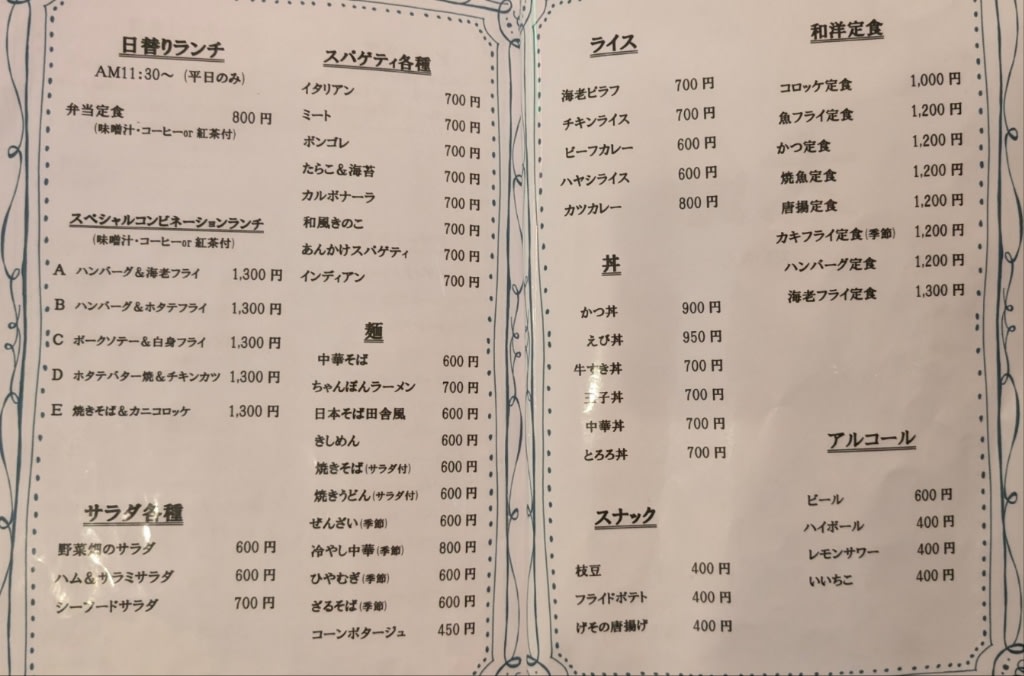 日替りランチ
AM11:30～（平日のみ）
弁当定食 800円
（味噌汁・コーヒーor 紅茶付）
スペシャルコンビネーションランチ
（味噌汁・コーヒーor 紅茶付）
A ハンバーグ＆海老フライ 1,300円
B ハンバーグ＆ホタテフライ 1,300円
C ポークソテー＆白身フライ 1,300円
D ホタテバター焼＆チキンカツ 1,300円
E 焼きそば＆カニコロッケ 1,300円
サラダ各種
野菜畑のサラダ 600円
ハム＆サラミサラダ 600円
シーフードサラダ 700円
スパゲティ各種
イタリアン 700円
ミート 700円
ボンゴレ 700円
たらこ＆海苔 700円
カルボナーラ 700円
和風きのこ 700円
あんかけスパゲティ 700円
インディアン 700円
麺
中華そば 600円
ちゃんぽんラーメン 700円
日本そば田舎風 600円
きしめん 600円
焼きそば（サラダ付） 600円
焼きうどん（サラダ付） 600円
ぜんざい（季節） 600円
冷やし中華（季節） 800円
ひやむぎ（季節） 600円
ざるそば（季節） 600円
コーンポタージュ 450円
ライス
海老ピラフ 700円
チキンライス 700円
ビーフカレー 600円
ハヤシライス 600円
カツカレー 800円
丼
かつ丼 900円
えび丼 950円
牛すき丼 700円
玉子丼 700円
中華丼 700円
とろろ丼 700円
スナック
枝豆 400円
フライドポテト 400円
げその唐揚げ 400円
和洋定食
コロッケ定食 1,000円
魚フライ定食 1,200円
かつ定食 1,200円
焼魚定食 1,200円
唐揚定食 1,200円
カキフライ定食（季節） 1,200円
ハンバーグ定食 1,200円
海老フライ定食 1,300円
アルコール
ビール 600円
ハイボール 400円
レモンサワー 400円
いいちこ 400円